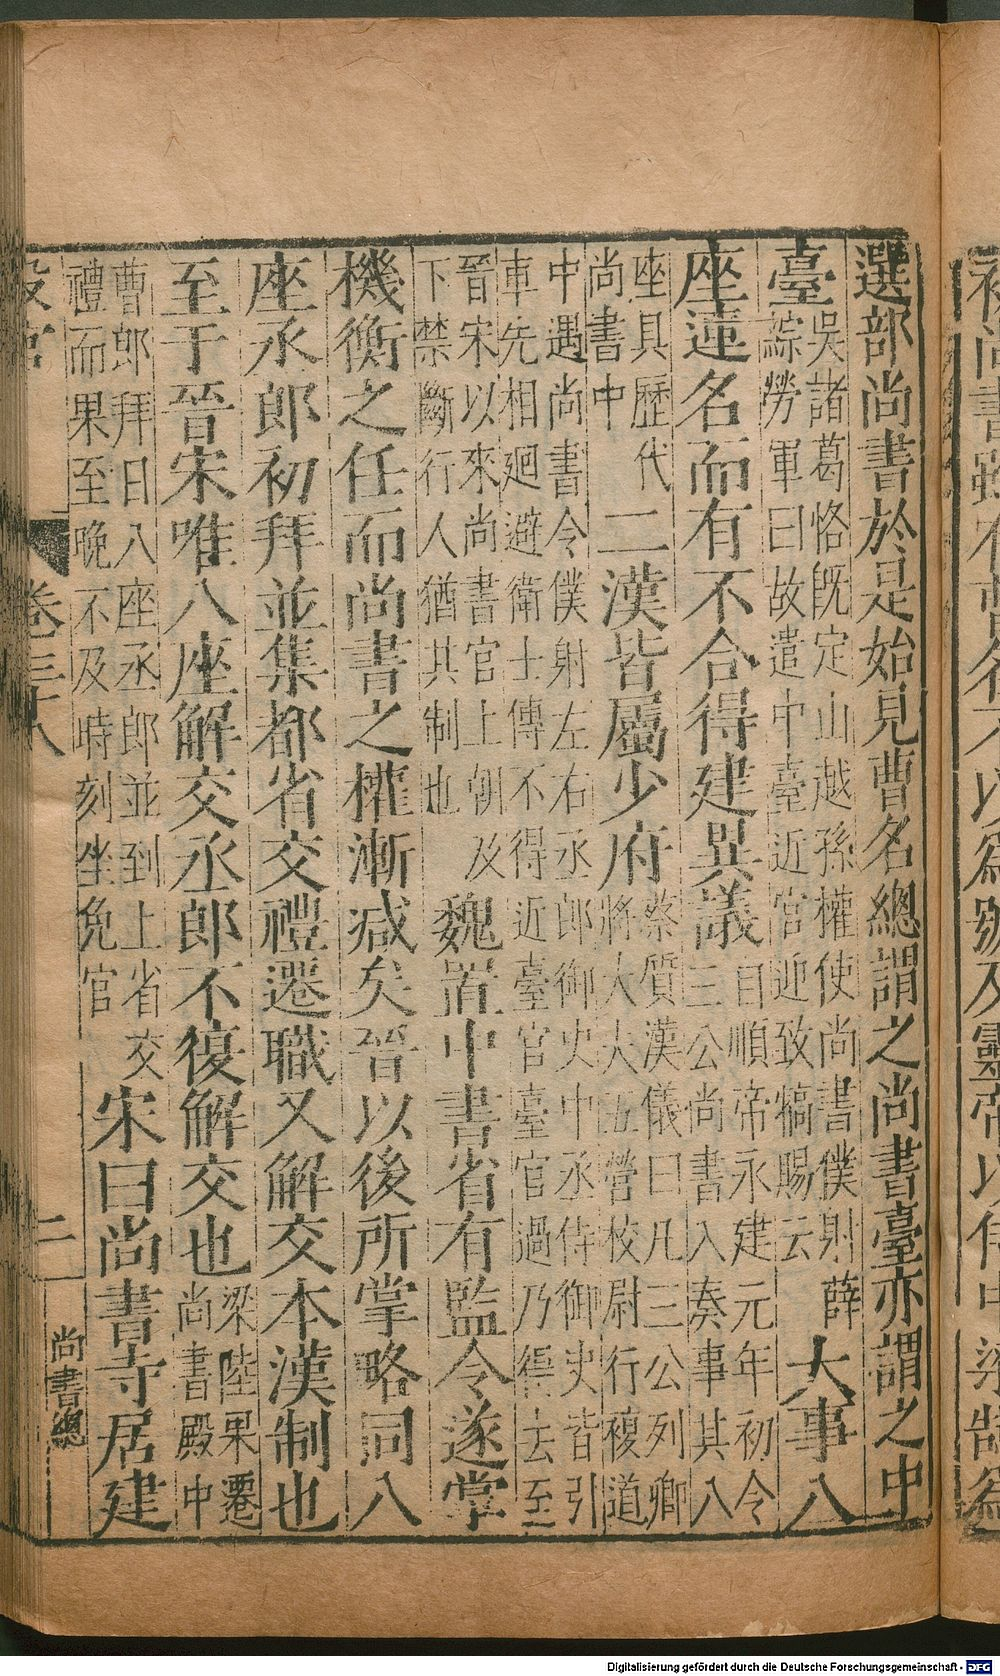 選部尚書於是始見曹名總謂之尚書臺亦謂之中
臺吳諸葛恪旣定山越孫權使尚書僕射薛綜勞軍曰故遣中臺近官迎致犒賜云大事八
座連名而有不合得建異議自順帝永建元年初令三公尚書入奏事其八
座具歷代尚書中二漢皆屬少府蔡質漢儀曰凡三公列卿將大大五營校尉行複道
中遇尚書令僕射左右丞郎御史中丞侍御史皆引車先相廻避衛士傳不得近臺官臺官過乃得去至
晉宋以來尚書官上朝及下禁斷行人猶其制也魏置中書省有監令遂掌
機衡之任而尚書之權漸減矣晉以後所掌略同八
座丞郎初拜並集都省交禮遷職又解交本漢制也
至于晉宋唯八座解交丞郎不復解交也梁陸果遷尚書殿中
曹郎拜日八座丞郎並到上省交禮而果至晚不及時刻坐免官宋曰尚書寺居建
卷三十八
二
尚書總
Digitalisierung gefördert durch die Deutsche Forschungsgemeinschaft - DFG